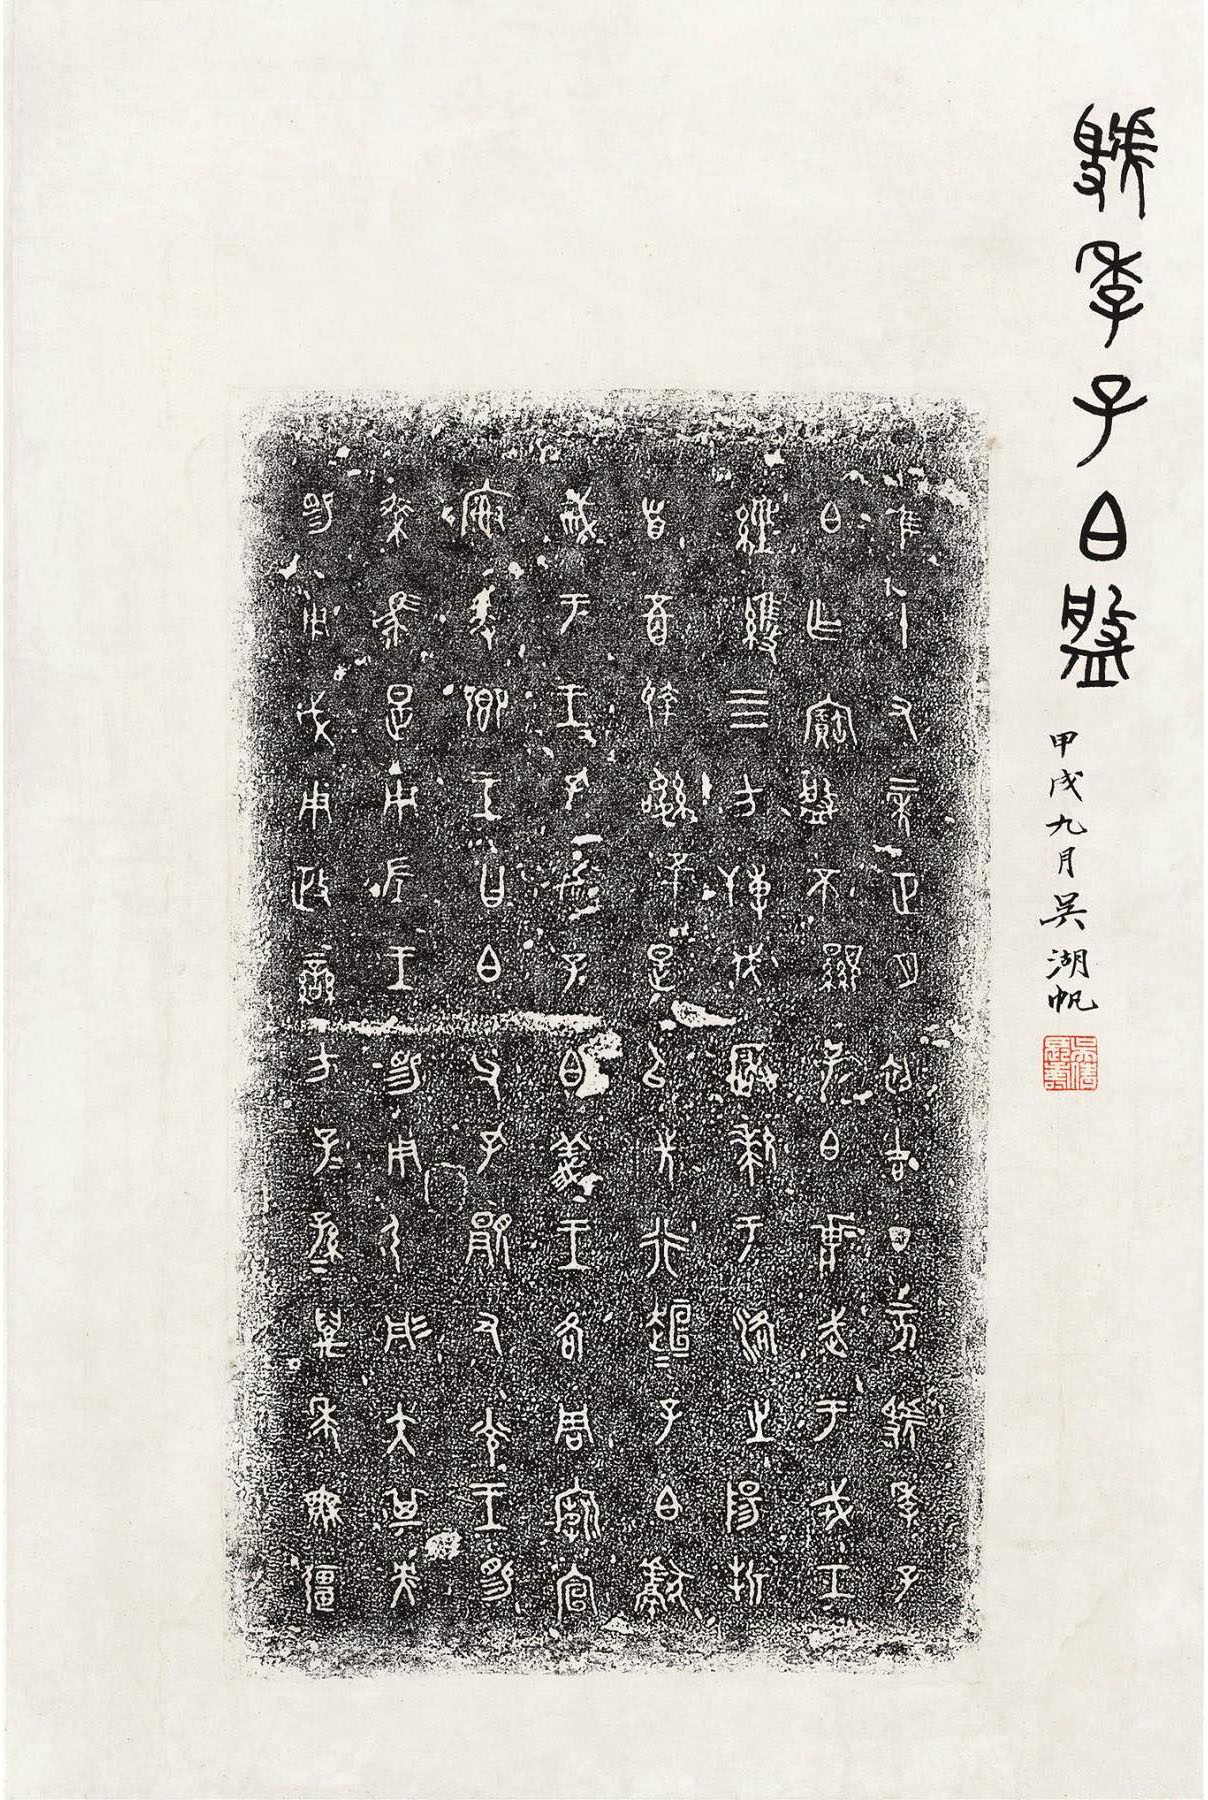 虢季子白盤
甲戌九月吳湖帆
隹十又二年正月初吉丁亥虢季子
白乍寶盤不顯子白壯武于戎工
經維四方搏伐玁狁于洛之陽折
首五百執訊五十是以先行趄趄子白獻
馘于王王孔加子白義王各周廟宣
榭爰鄉王曰白父孔顯又光王睗
乘馬是用左王睗用弓彤矢其央
睗用戉用政蠻方子子孫孫萬年無疆